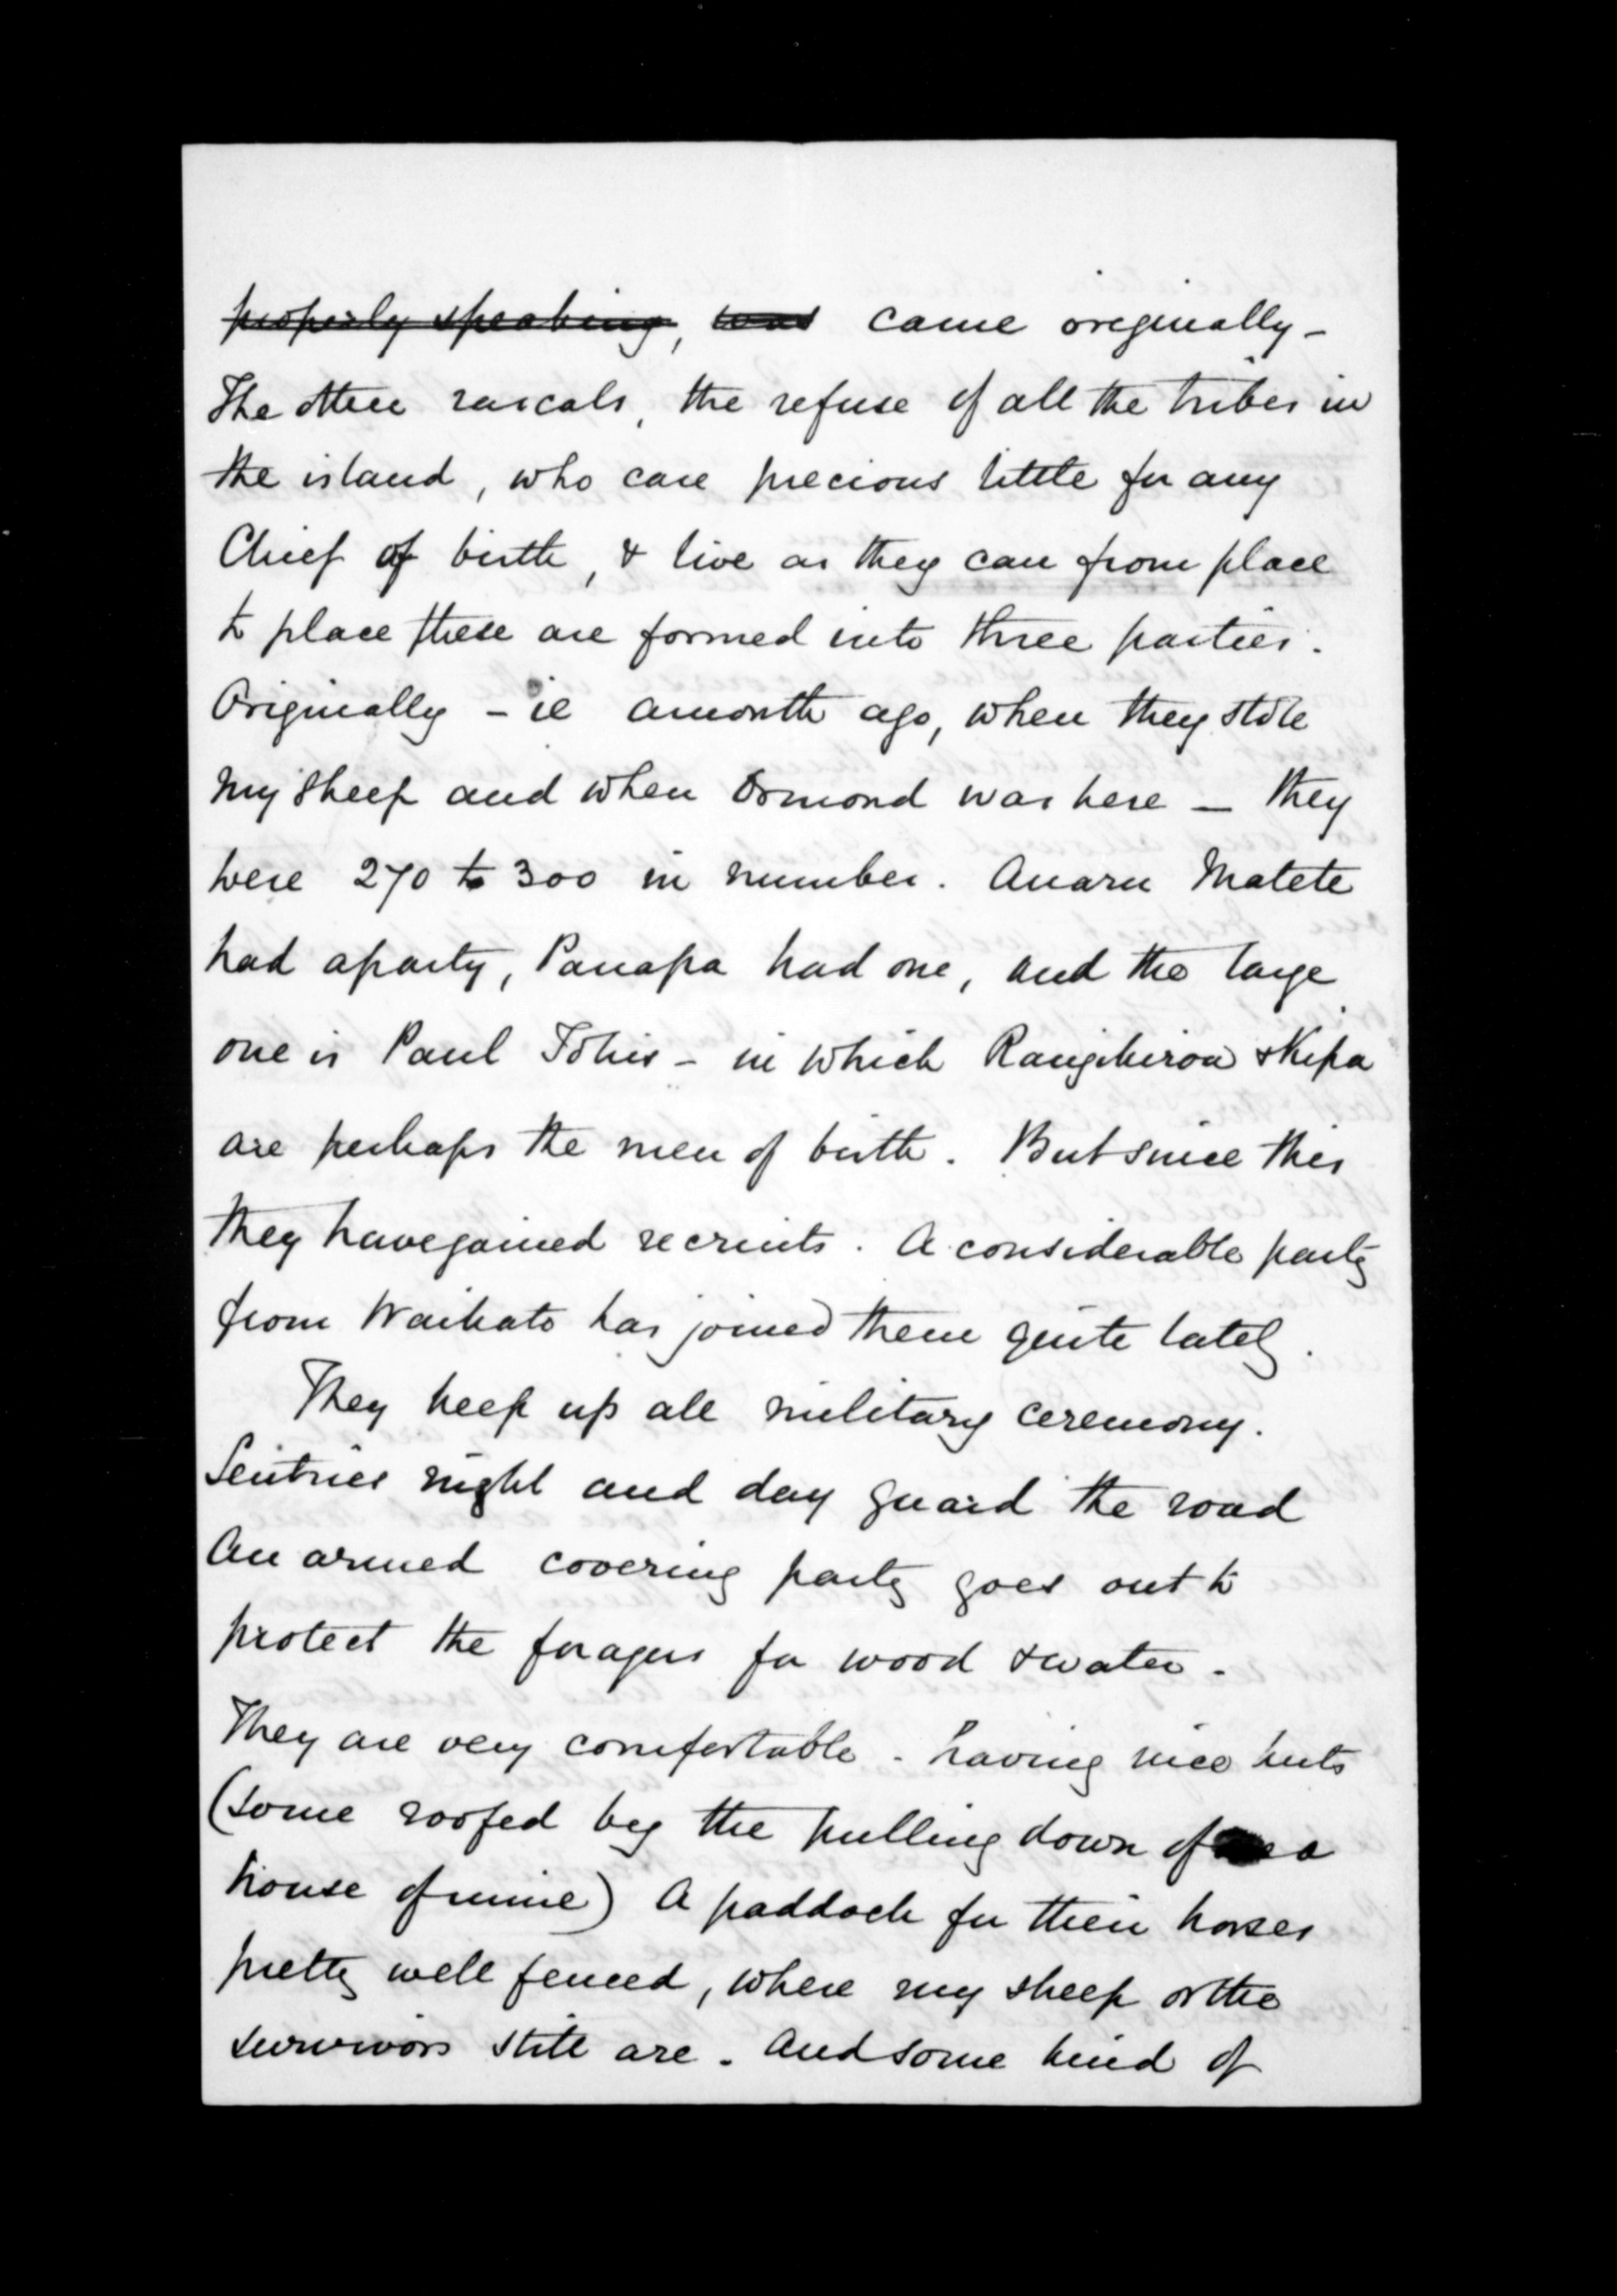 properly speaking, was came originally -
The other rascals, the refuse of all the tribes in
the island, who care precious little for any
Chief of birth, & live as they can from place
to place these are formed into three parties.
Originally - ie a month ago, when they stole
my sheep and when Ormond was here - they
were 270 to 300 in number. Anaru Matete
had a party, Panapa had one, and the large
one is Paul Tohis - in which Rangihiroa & Kipa
are perhaps the men of birth. But since this
they have gained recruits. A considerable party
from Waikato has joined them quite lately.
They keep up all military ceremony.
Sentries night and day guard the road
An armed covering party goes out to
protect the foragers for wood & water.
They are very comfortable - having nice huts
(some roofed by the pulling down of a
house of mine) A paddock for their horses
pretty well fenced, where my sheep or the
survivors still are. And some kind of